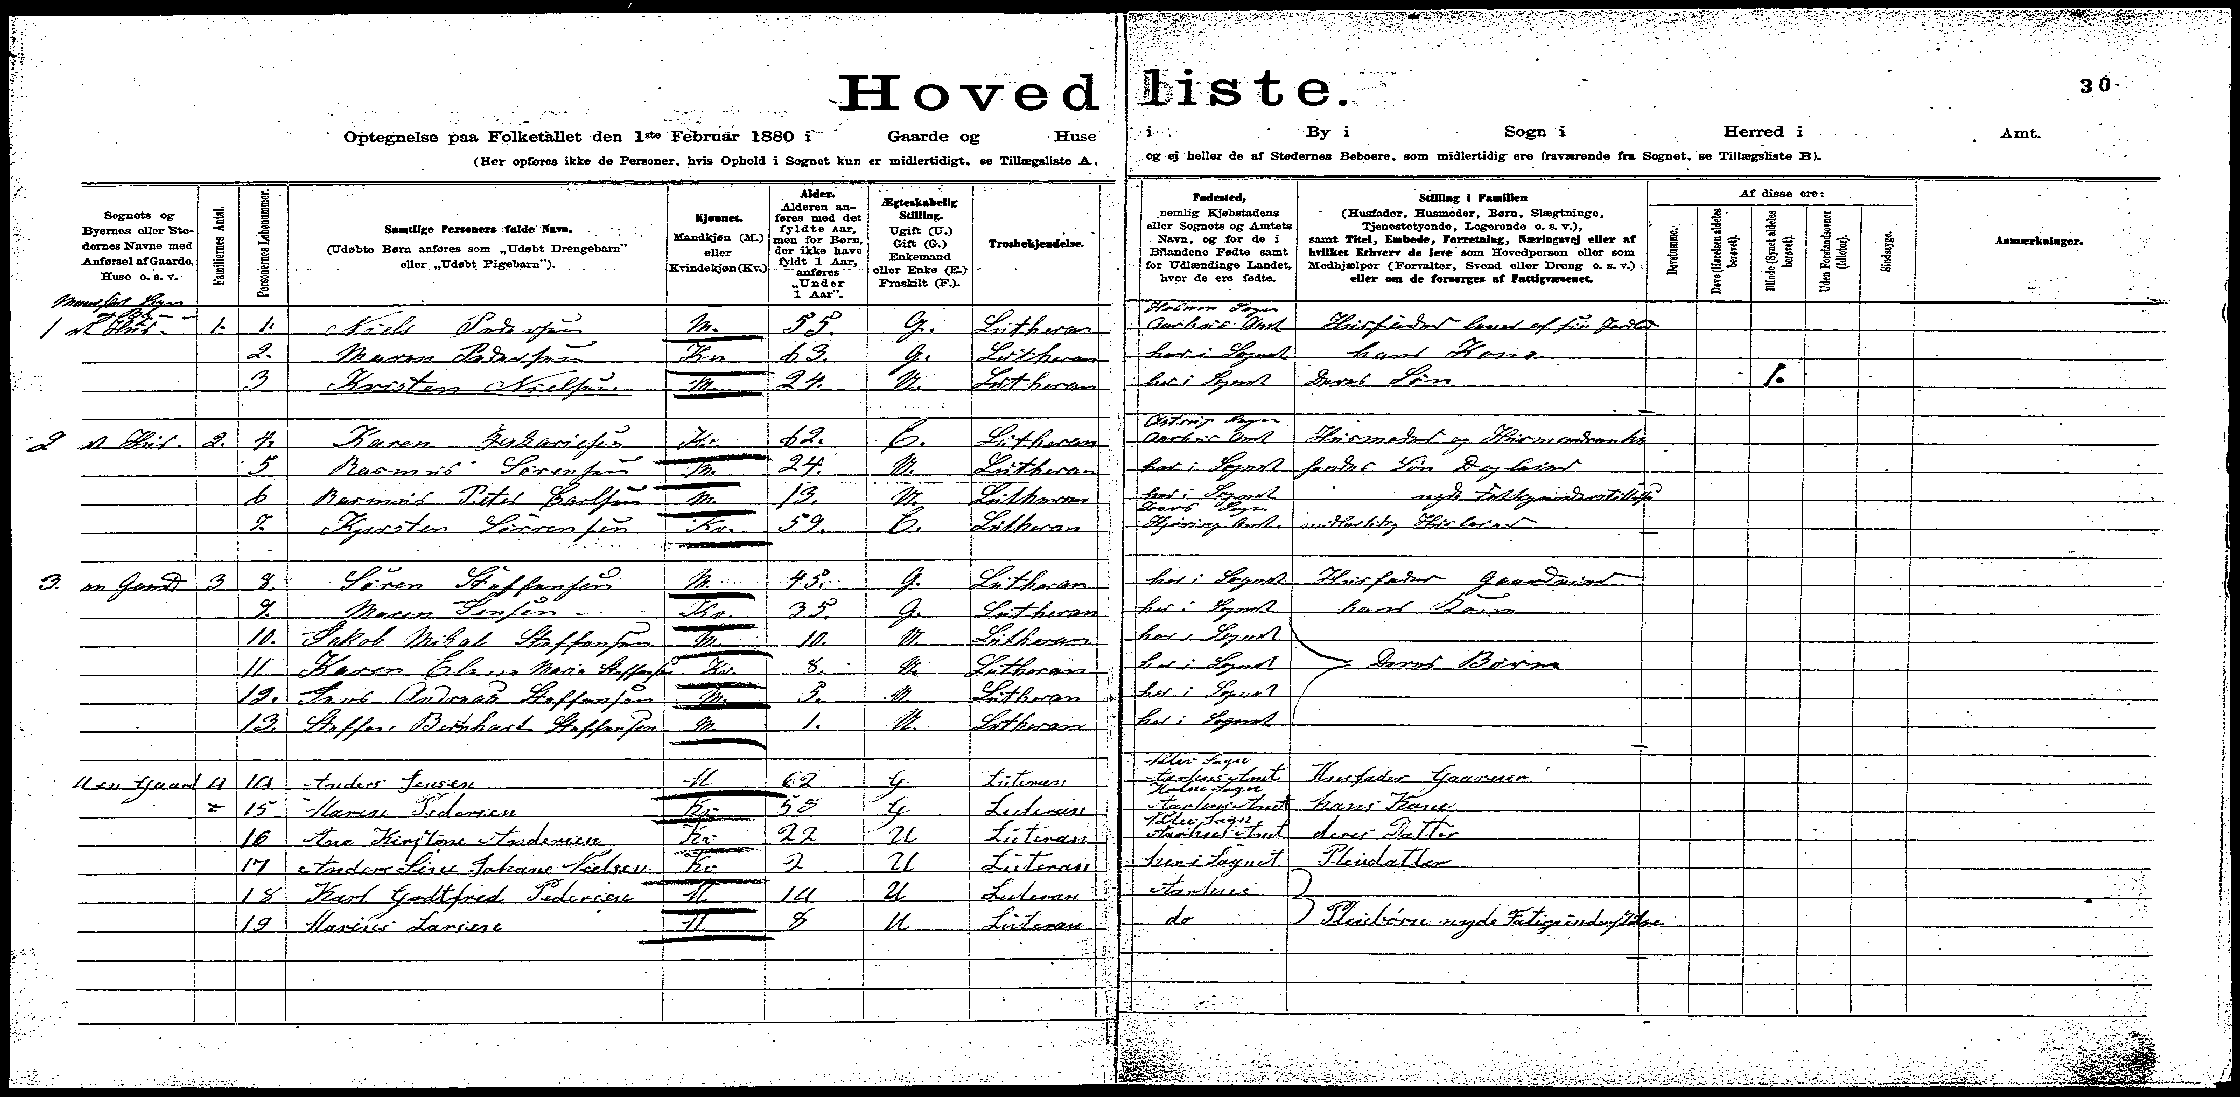 Hovedliste.
30
Optegnelse paa Folketallet den 1ste Februar 1880 i Gaarde og Huse i By i Sogn i Herred i Amt.
(Her opføres ikke de Personer, hvis Ophold i Sognet kun er midlertidigt, se Tillægsliste A, og ej heller de af Stedernes Beboere, som midlertidig ere fraværende fra Sognet, se Tillægsliste B).
Sognets og Byernes eller Stedernes Navne med Anførsel af Gaarde, Huse o. s. v.
Familiernes Antal.
Personernes Løbenummer.
Samtlige Personers fulde Navn.
(Udøbte Børn anføres som „Udøbt Drengebarn" eller „Udøbt Pigebarn").
Kjønnet.
Mandkjøn (M.) eller Kvindekjøn (Kv.)
Alder.
Alderen anføres med det fyldte Aar, men for Børn, der ikke have fyldt 1 Aar, anføres „Under 1 Aar".
Ægteskabelig Stilling.
Ugift (U.) Gift (G.) Enkemand eller Enke (E.) Fraskilt (F.).
Trosbekjendelse.
Fødested,
nemlig Kjøbstadens eller Sognets og Amtets Navn, og for de i Bilandene Fødte samt for Udlændinge Landet, hvor de ere fødte.
Stilling i Familien
(Husfader, Husmoder, Børn, Slægtninge, Tjenestetyende, Logerende o. s. v.),
samt Titel, Embede, Forretning, Næringsvej eller af hvilket Erhverv de leve som Hovedperson eller som Medhjælper (Forvalter, Svend eller Dreng o. s. v.) eller om de forsørges af Fattigvæsenet.
Af disse ere:
Døvstumme.
Døve (Hørelsen aldeles berøvet).
Blinde (Synet aldeles berøvet).
Uden Forstandsevner (Idioter).
Sindssyge.
Anmærkninger.
1 et Huus. 1. 1. Niels Pedersen M. 55. G. Lutheran Aarhus Amt Huusfader lever af sin Jordlod
2. Maren Pedersen Kv. 63. G. Lutheran her i Sognet hans Kone
3 Kresten Nielsen M. 24. U. Lutheran her i Sognet Deres Søn 1.
2 et Huus. 2. 4. Karen Zakariesen Kv. 62. E. Lutheran Aarhus Amt Huusmoder og Huusmandsenke
5 Rasmus Sørensen M. 24. U. Lutheran her i Sognet hendes Søn Daglejer
6 Rasmus Peter Carlsen M. 13. U. Lutheran her i Sognet nyde Fattigunderstøttelse
7. Kjersten Sørensen Kv. 59. E. Lutheran Hjørring Amt.
3. en Gaard 3 8. Søren Steffensen M. 45. G. Lutheran her i Sognet Huusfader Gaardeier
9. Maren Jensen Kv. 35. G. Lutheran her i Sognet hans Kone
10. Jakob Mikal Steffensen M. 10. U. Lutheran her i Sognet
11 Karen Elene Marie Steffensen Kv. 8. U. Lutheran her i Sognet Deres Børn
12. Jens Andreas Steffensen M. 3. U. Lutheran her i Sognet
13. Steffen Bernhart Steffensen M. 1. U. Lutheran her i Sognet
4 en Gaard 4 14 Anders Jensen M 62 G Luteran Aarhus Amt Husfader Gaardeier
15 Maren Pedersen Kv 58 G Luteran Aarhus Amt hans Kone
16 Ane Kirstine Andersen Kv 22 U Luteran Aarhus Amt deres Datter
17 Anders Sine Johane Nielsen Kv 2 U Luteran her i Sognet Pleiedatter
18 Karl Godtfred Pedersen M 14 U Luteran Aarhus
19 Marius Larsen M 8 U Luteran do Pleiebørn nyde Fatigunderstøttelse